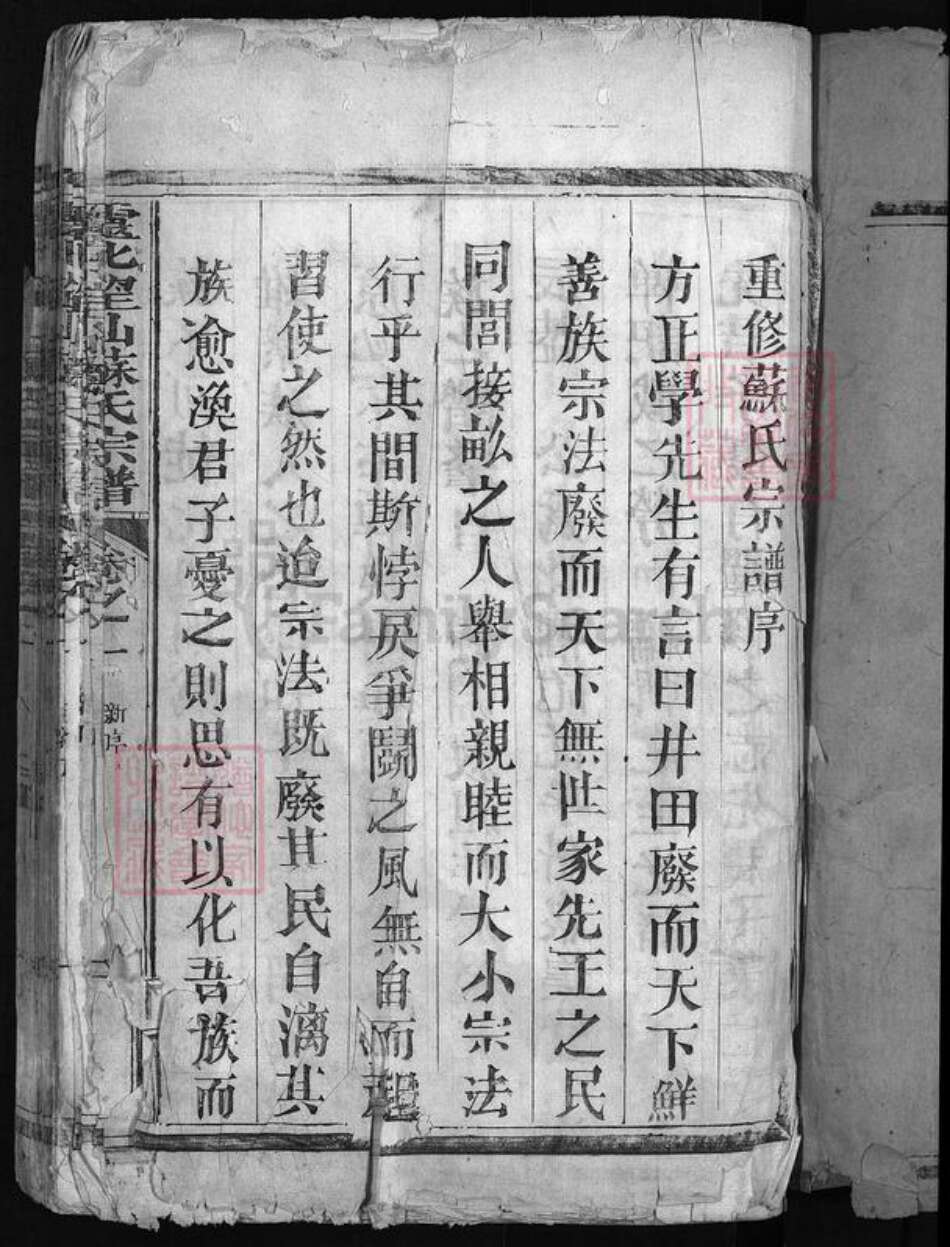 重修蘇氏宗譜序
方正學先生有言曰井田廢而天下鮮
善族宗法廢而天下無世家先王之民
同閭接畝之人舉相親睦而大小宗法
行乎其間斯悖戾爭鬪之風無自而起
習使之然也迨宗法既廢其民自漓其
族愈渙君子憂之則思有以化吾族而
望仙蘇氏宗譜 卷之一 新序